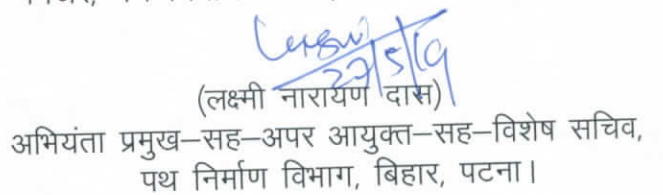 27/5/19
(लक्ष्मी नारायण दास)
अभियंता प्रमुख–सह–अपर आयुक्त–सह–विशेष सचिव,
पथ निर्माण विभाग, बिहार, पटना।